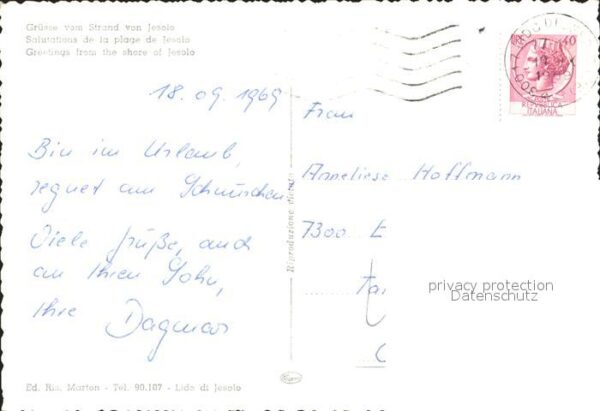 Grüsse vom Strand von Jesolo
Salutations de la plage de Jesolo
Greetings from the shore of Jesolo
18.09.1969
Bin im Urlaub,
regnet am
Viele Grüße, auch
an Ihren Sohn,
Ihre Dagmar
Ed. Ris. Marton - Tel. 90.187 - Lido di Jesolo
Riproduzione
40
REPUBBLICA
ITALIANA
Frau
Anneliese Hoffmann
7300 E
privacy protection
Datenschutz